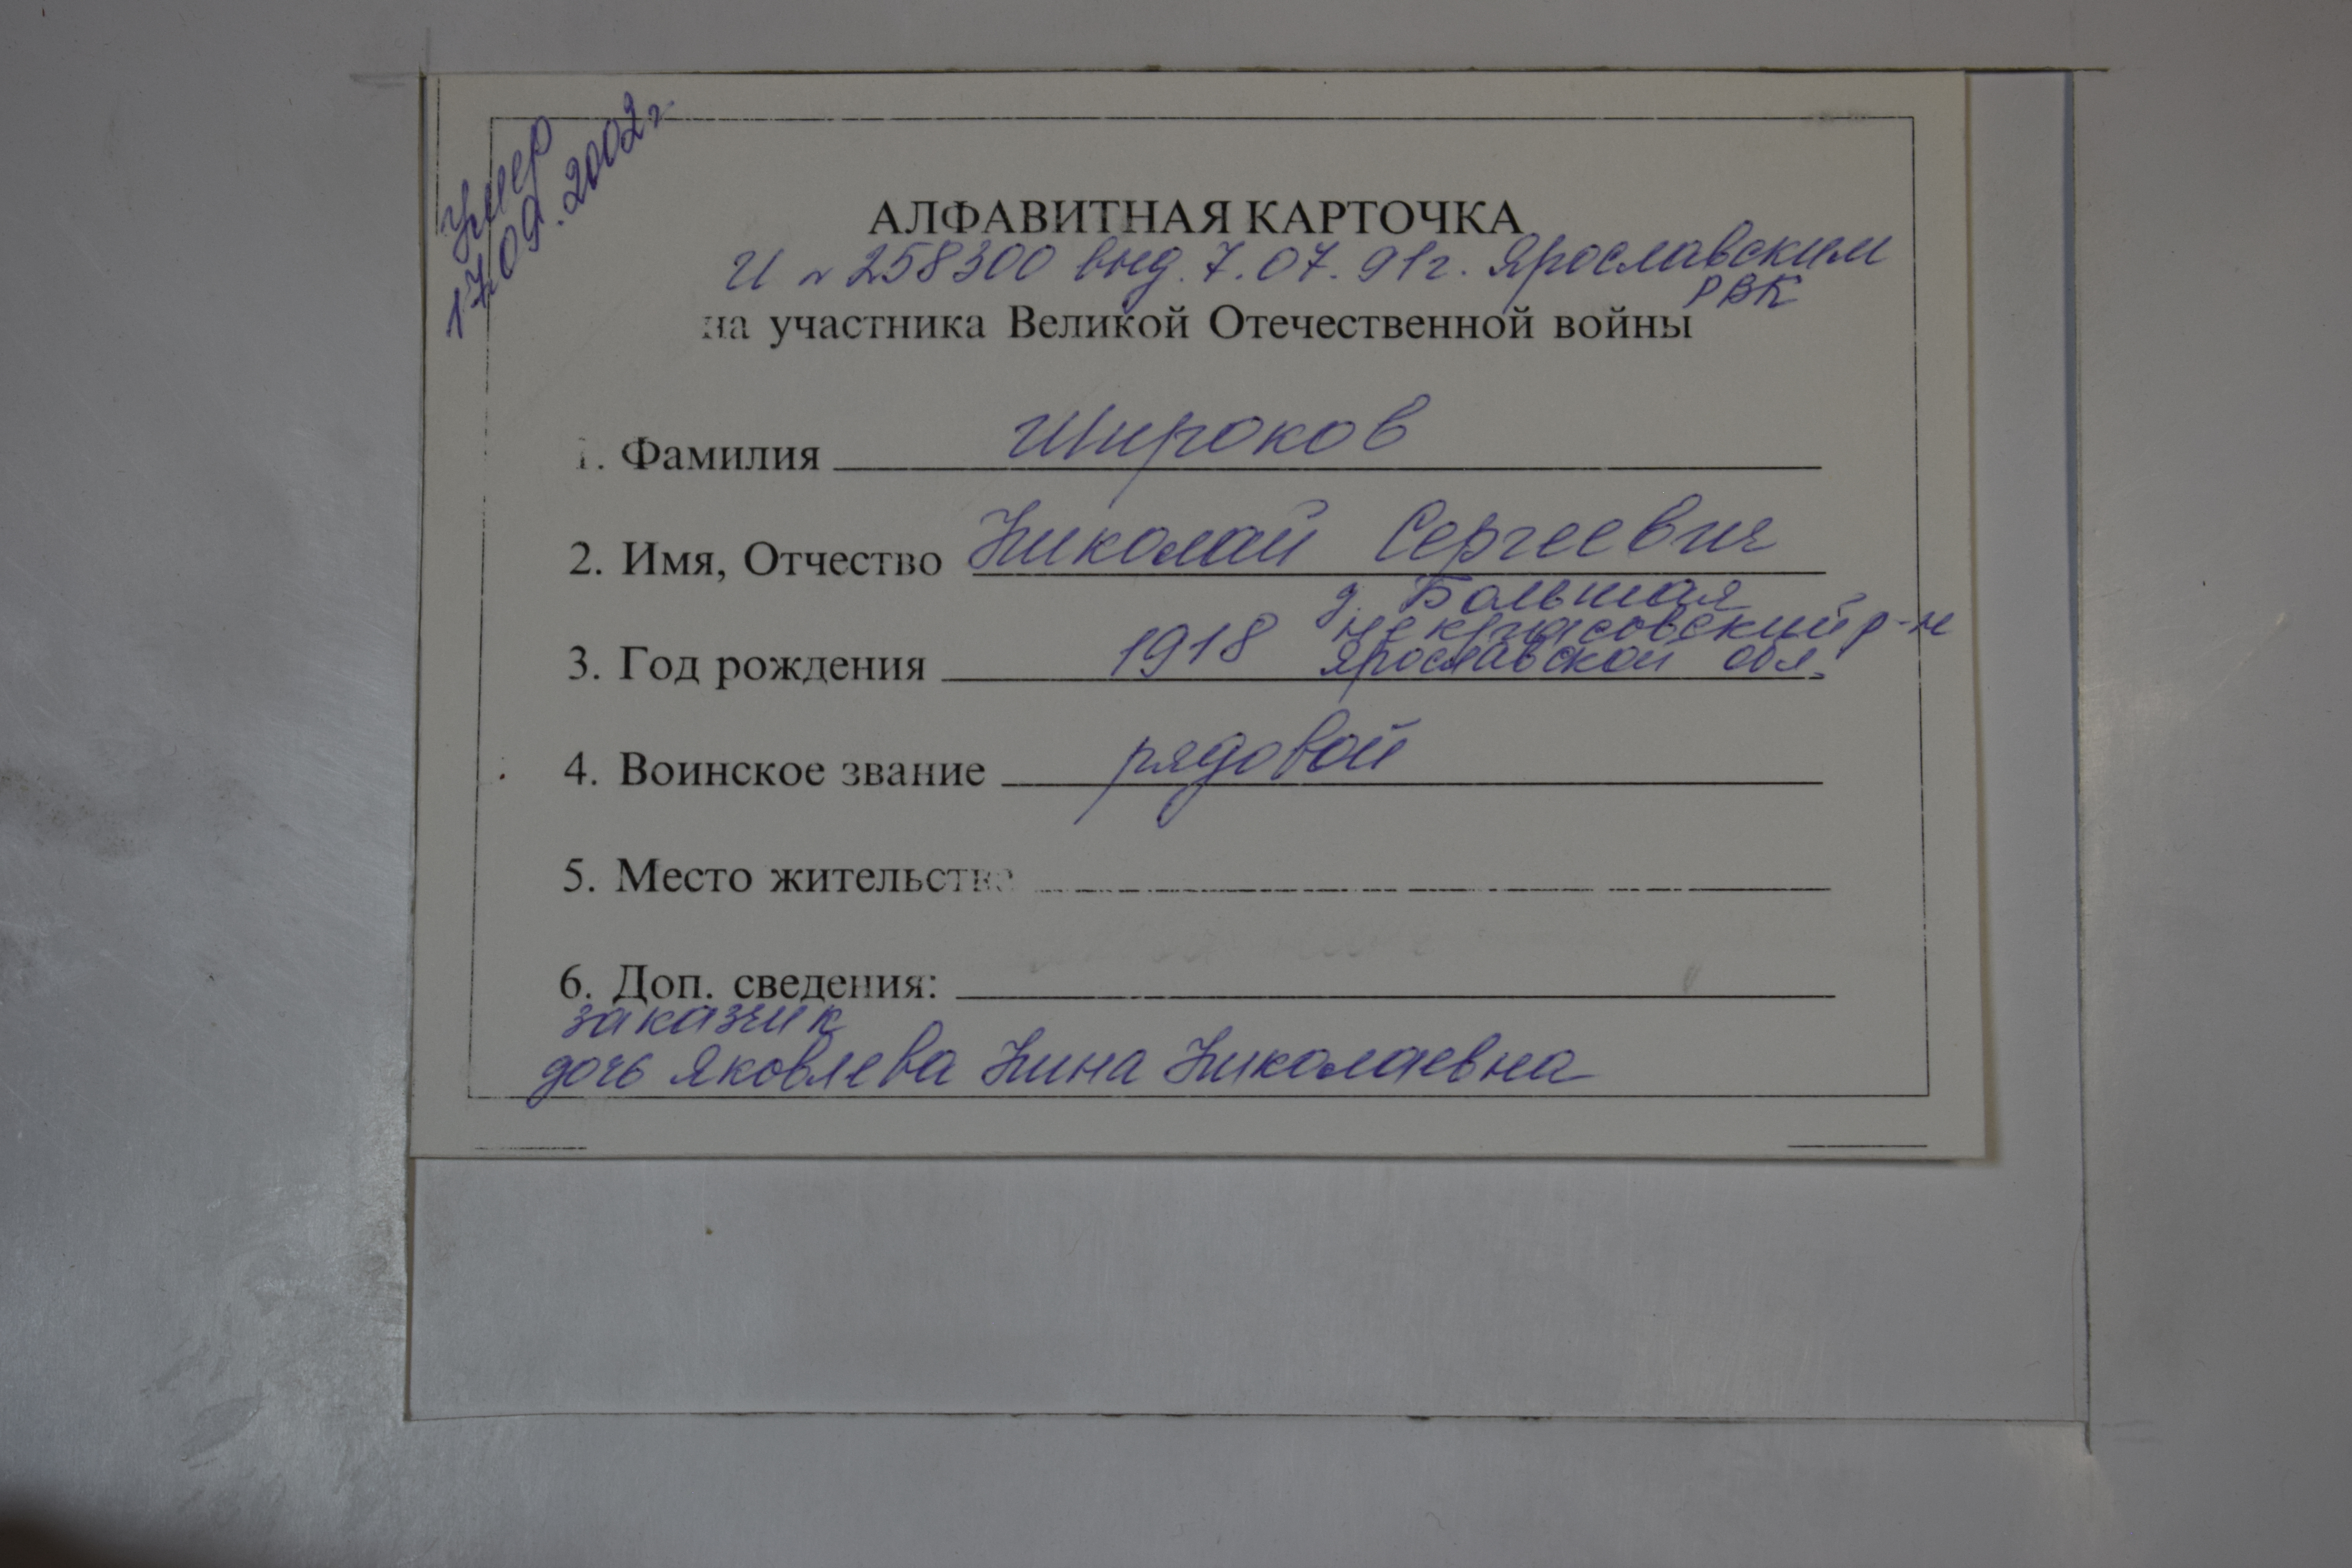 умер
17.09.2002г
АЛФАВИТНАЯ КАРТОЧКА
И N 258300 выд. 7.07.91г. Ярославским
РВК
на участника Великой Отечественной войны
1. Фамилия Широков
2. Имя, Отчество Николай Сергеевич
д. Большая
Некрасовский р-н
3. Год рождения 1918 Ярославской обл.
4. Воинское звание рядовой
5. Место жительства
6. Доп. сведения:
заказчик
дочь Яковлева Нина Николаевна